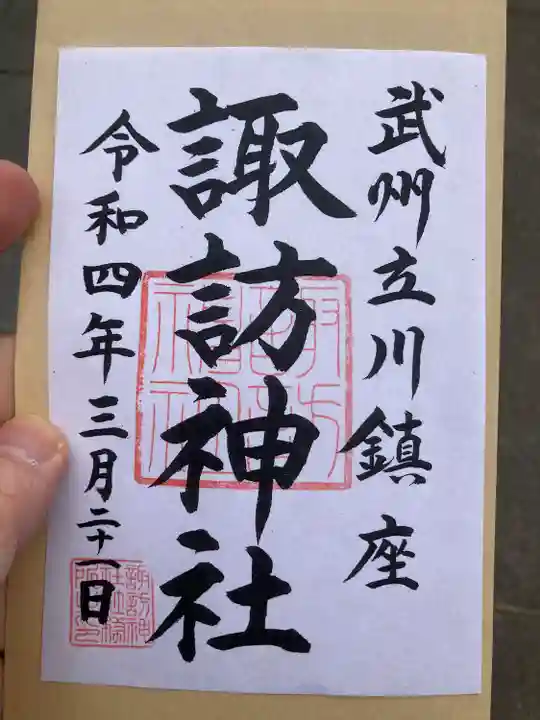 武州立川鎮座
諏訪神社
令和四年三月二十一日
諏訪神社